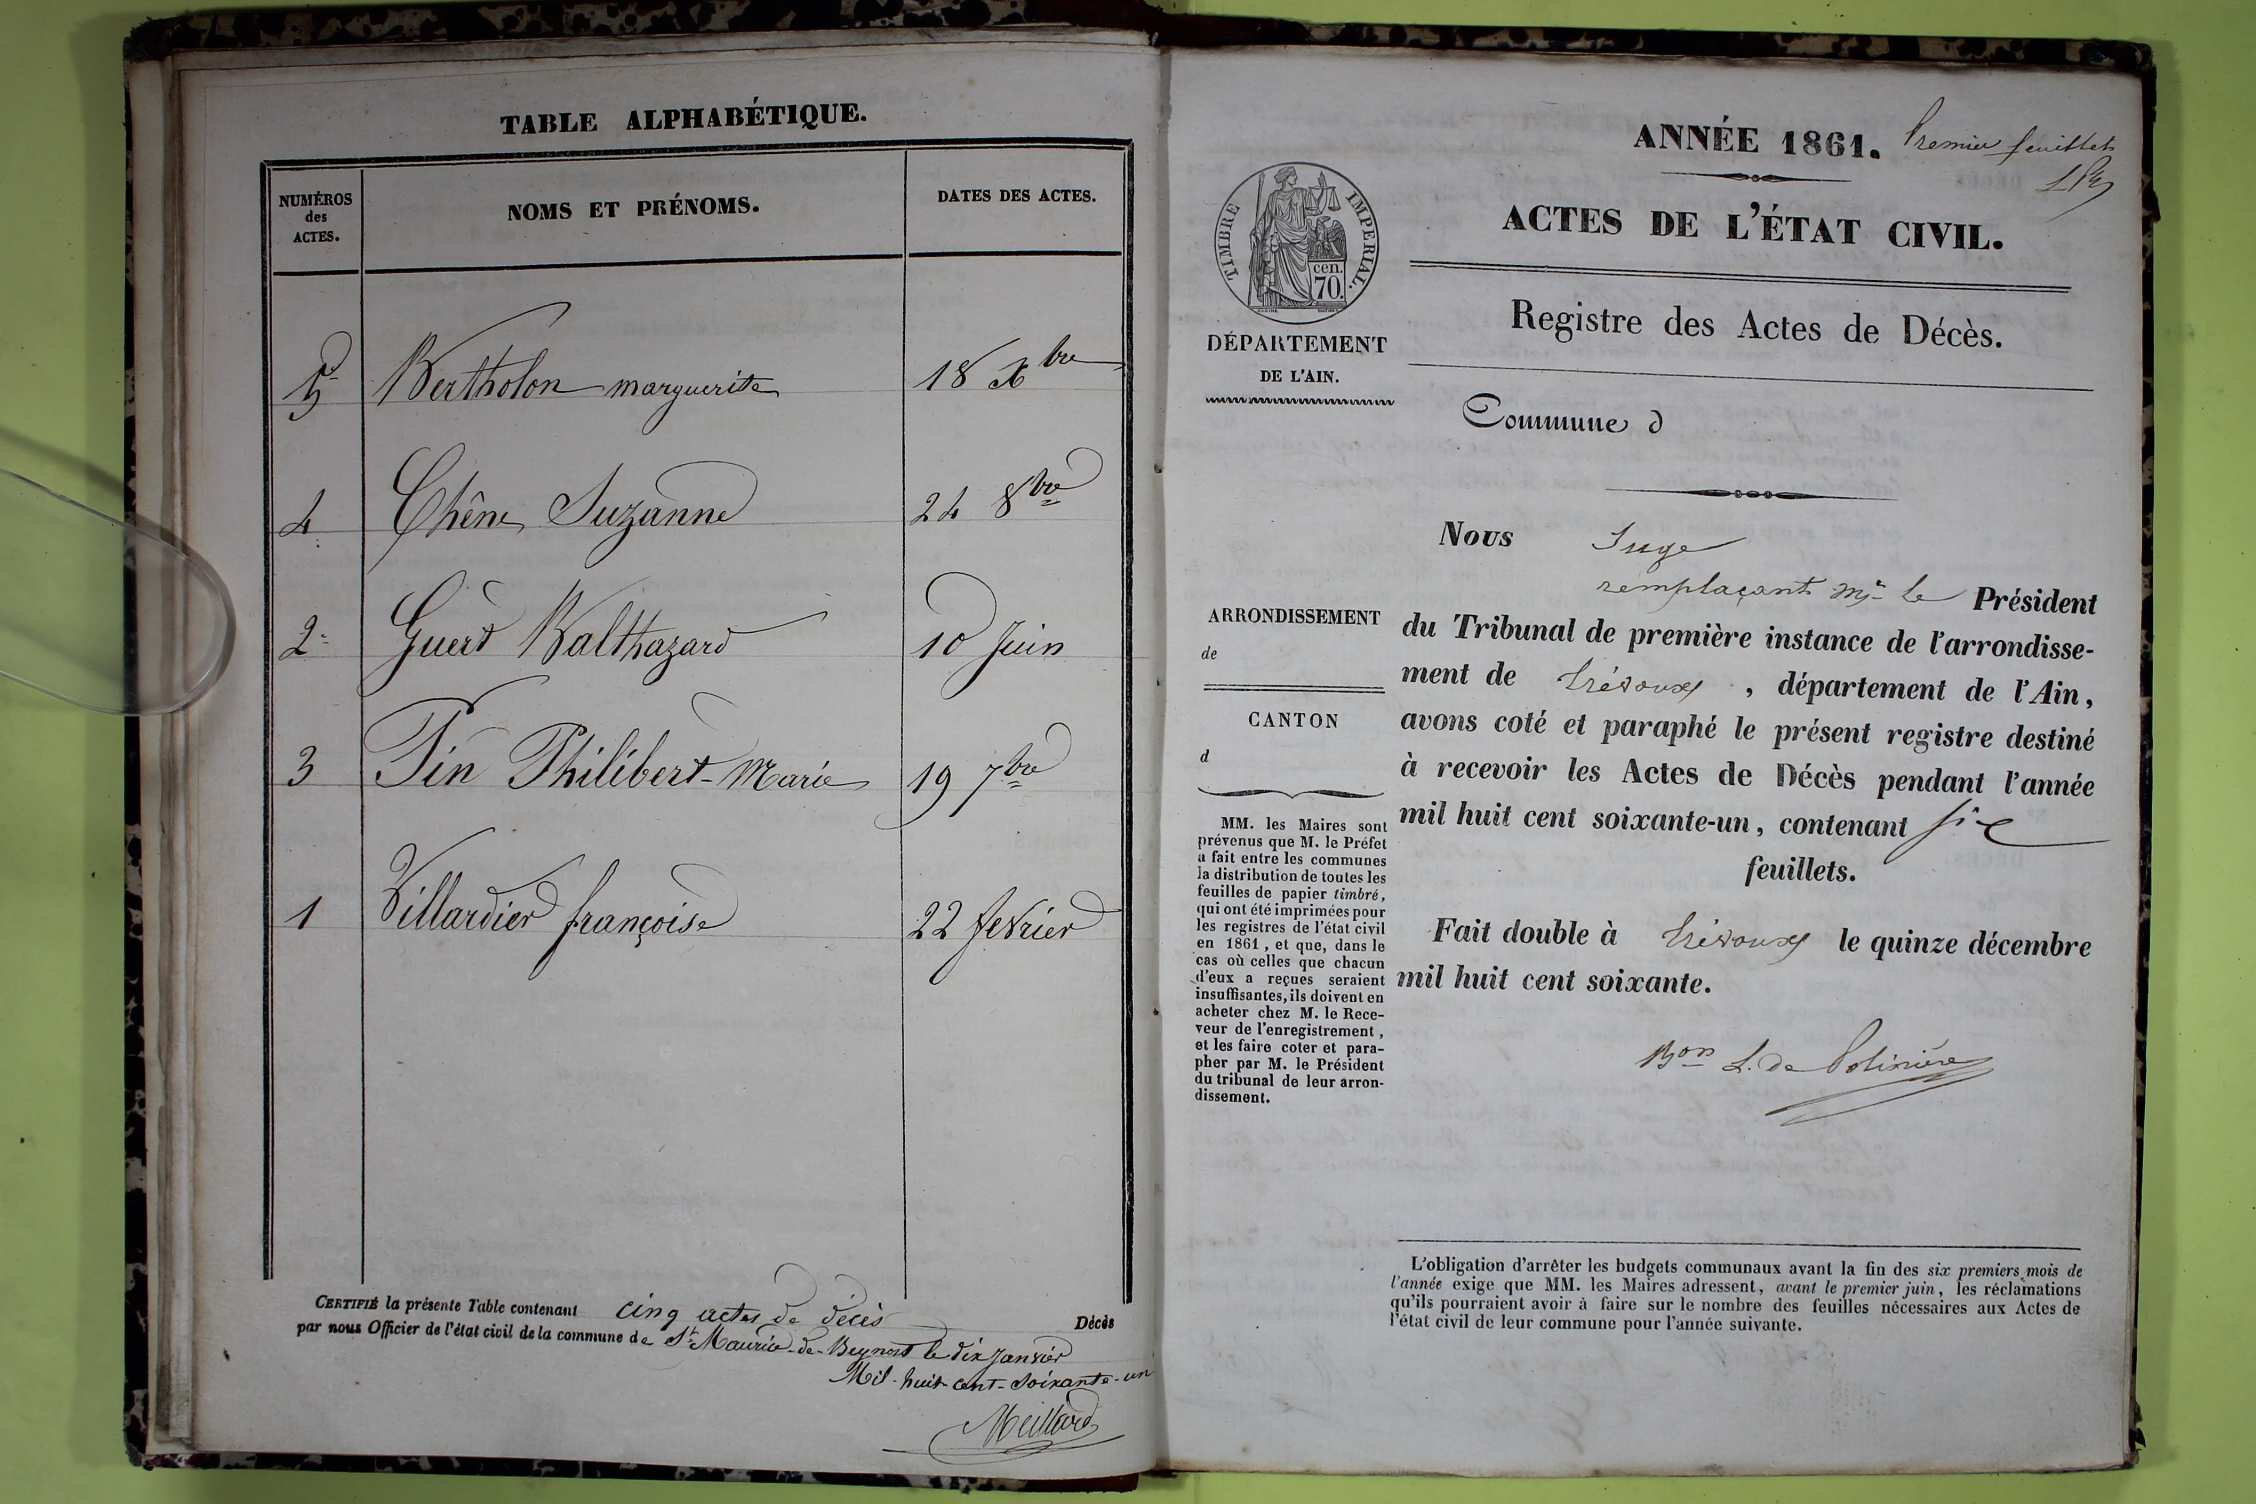 TABLE ALPHABÉTIQUE.
NUMÉROS
des
ACTES.
NOMS ET PRÉNOMS.
DATES DES ACTES.
5 Bertholon marguerite 18 Xbre
4 Chêne Suzanne 24 8bre
2 Guert Balthazard 10 Juin
3 Pin Philibert-Marie 19 7bre
1 Villardier françoise 22 fevrier
CERTIFIÉ la présente Table contenant cinq actes de décès Décès
par nous Officier de l'état civil de la commune de St Maurice-de-Beynost le dix Janvier
Mil-huit-cent-soixante-un
Meillard
ANNÉE 1861.
Premier feuillet
ACTES DE L'ÉTAT CIVIL.
TIMBRE IMPERIAL.
cen.
70.
DÉPARTEMENT
DE L'AIN.
Registre des Actes de Décès.
Commune d
ARRONDISSEMENT
de
CANTON
d
MM. les Maires sont
prévenus que M. le Préfet
a fait entre les communes
la distribution de toutes les
feuilles de papier timbré,
qui ont été imprimées pour
les registres de l'état civil
en 1861, et que, dans le
cas où celles que chacun
d'eux a reçues seraient
insuffisantes, ils doivent en
acheter chez M. le Rece-
veur de l'enregistrement,
et les faire coter et para-
pher par M. le Président
du tribunal de leur arron-
dissement.
Nous Juge
remplaçant Mr le Président
du Tribunal de première instance de l'arrondisse-
ment de Trévoux, département de l'Ain,
avons coté et paraphé le présent registre destiné
à recevoir les Actes de Décès pendant l'année
mil huit cent soixante-un, contenant six
feuillets.
Fait double à Trévoux le quinze décembre
mil huit cent soixante.
Bon L. de Polinière
L'obligation d'arrêter les budgets communaux avant la fin des six premiers mois de
l'année exige que MM. les Maires adressent, avant le premier juin, les réclamations
qu'ils pourraient avoir à faire sur le nombre des feuilles nécessaires aux Actes de
l'état civil de leur commune pour l'année suivante.